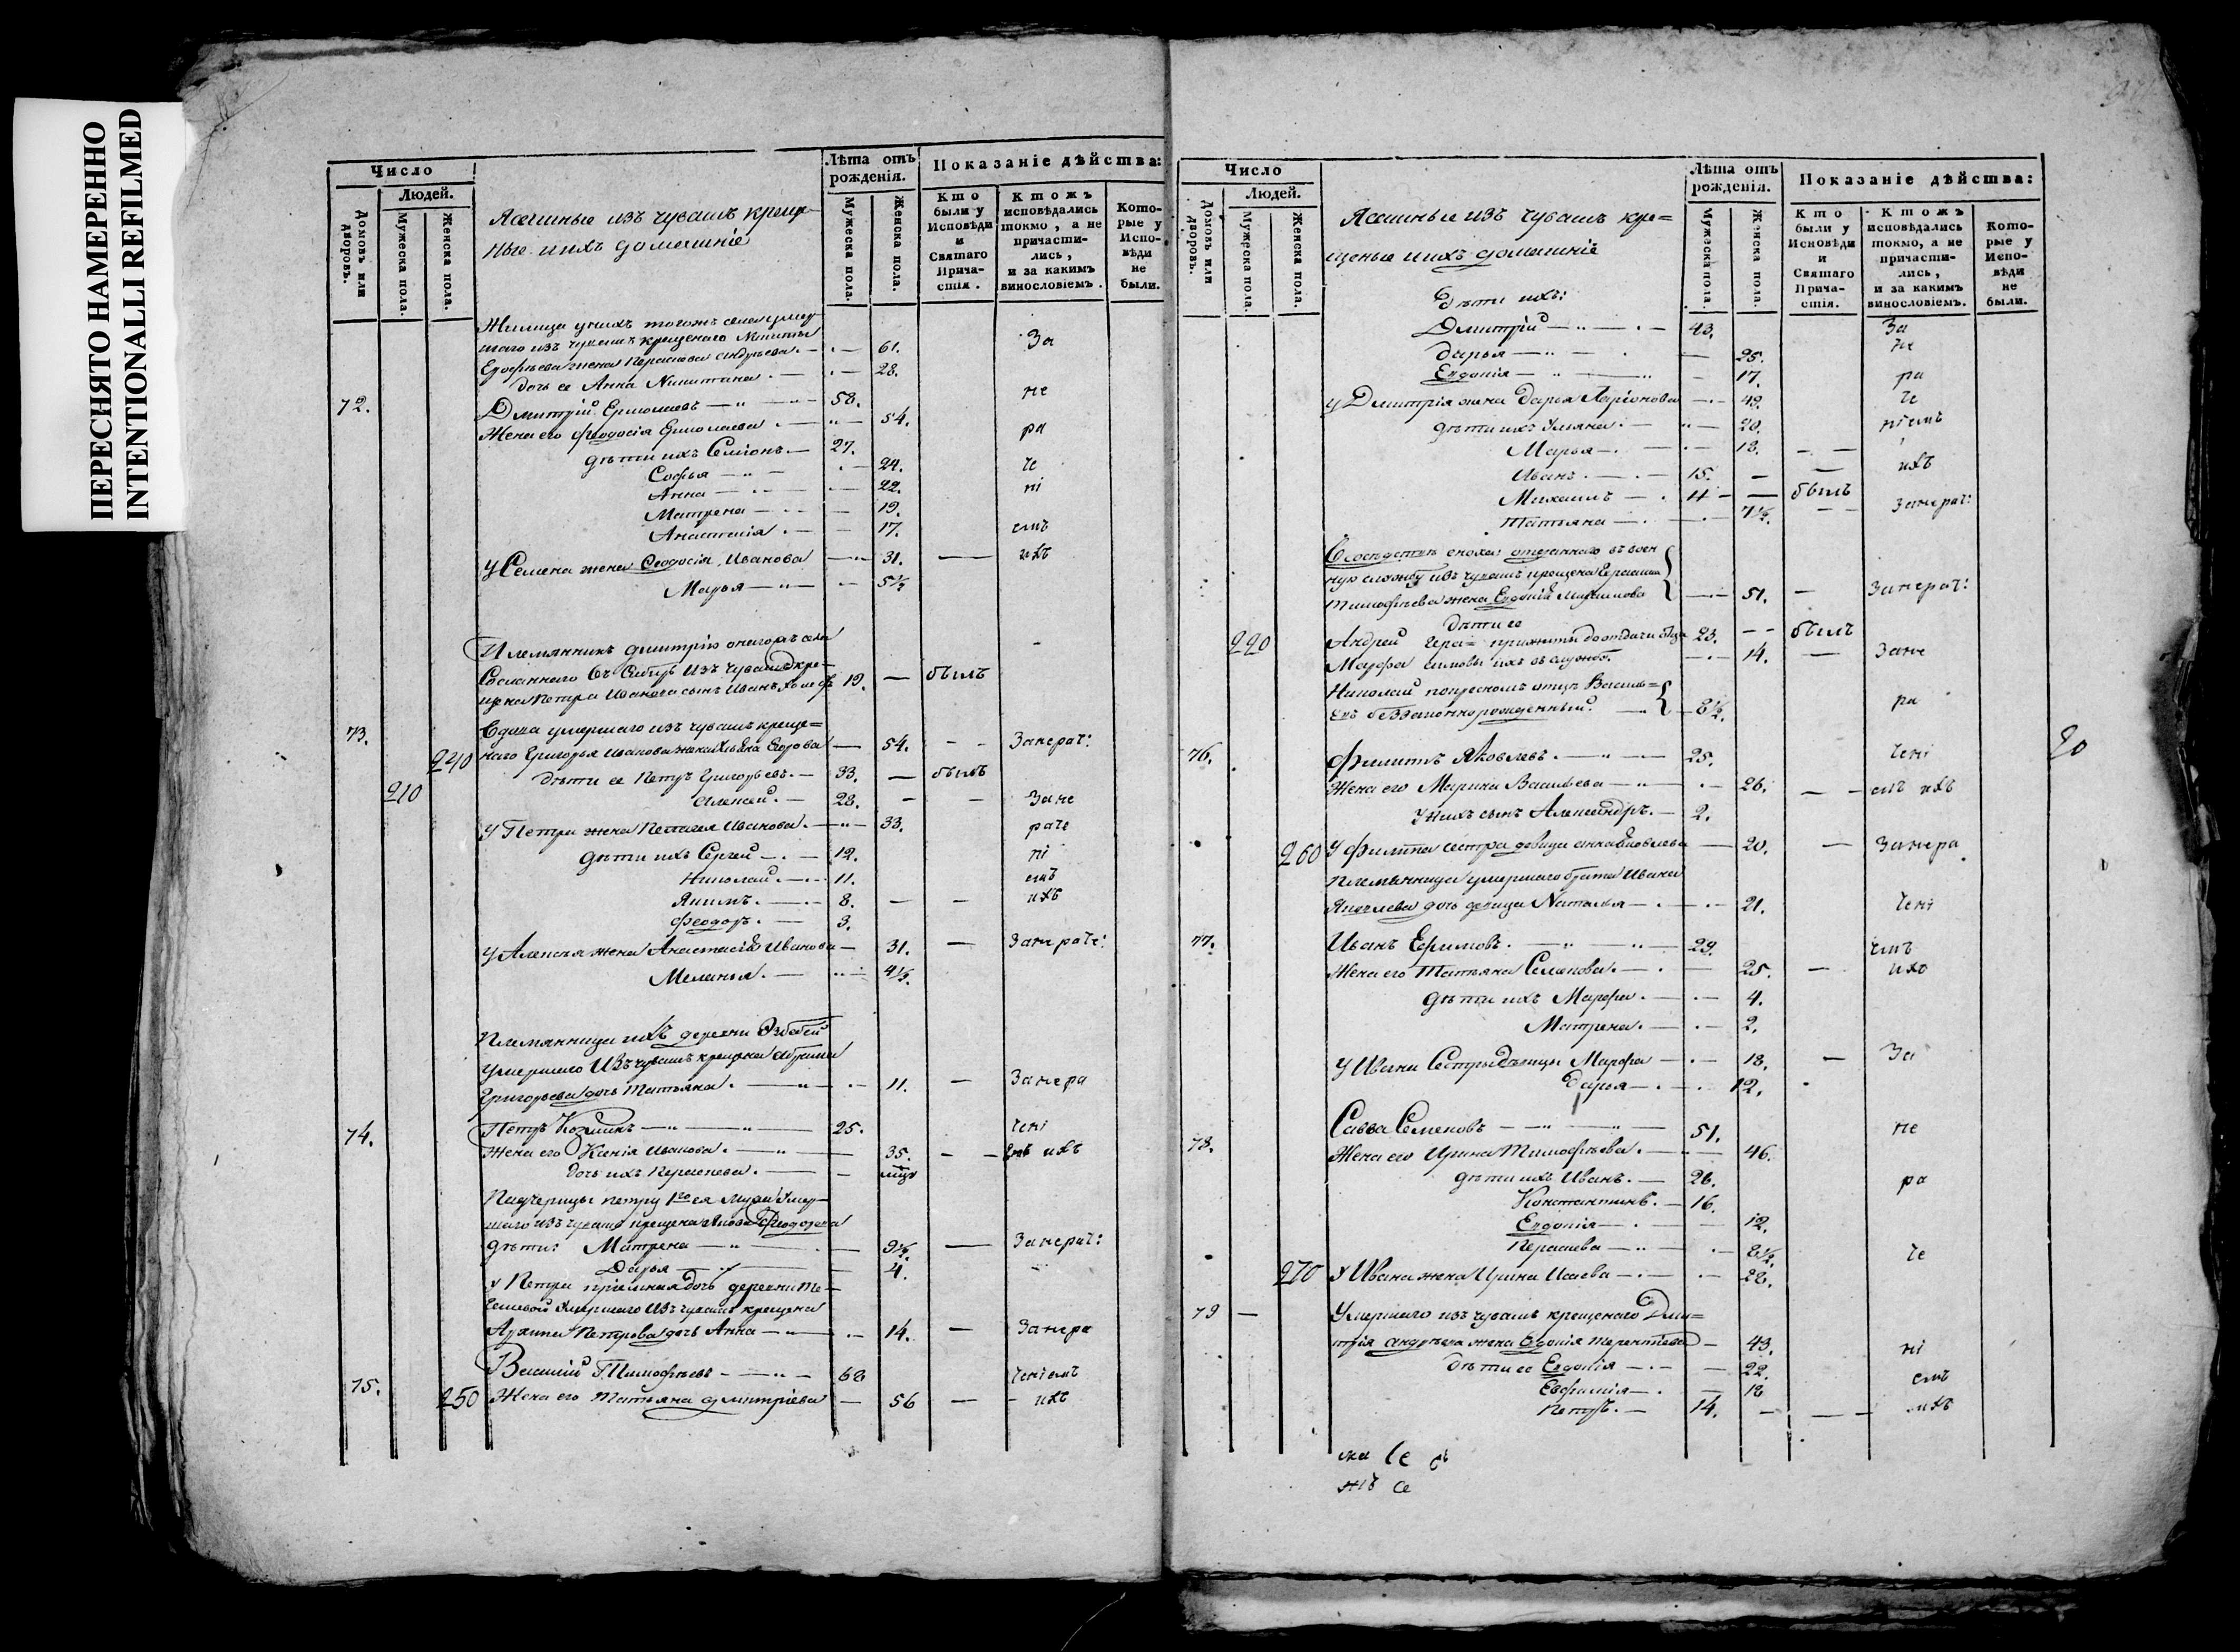 ПЕРЕСНЯТО НАМЕРЕННО
INTENTIONALLI REFILMED
Число
Людей.
Домовъ или дворовъ.
Мужеска пола.
Женска пола.
Ясашные изъ чувашъ креще-
ные и ихъ домашніе
Лѣта отъ рожденія.
Мужеска пола.
Женска пола.
Показаніе дѣйства:
Кто были у Исповѣди и Святаго Прича-стія.
Ктожъ исповѣдались токмо, а не причасти-лись, и за какимъ винословіемъ.
Кото-рые у Испо-вѣди не были.
Жилица у нихъ тогожъ села умер
шаго изъ чувашъ крещенаго Никиты
Ерофѣева жена Андреева. 61. За
дочь ее Анна Никитина. 28.
72. Дмитрій Ермолаевъ 58. не
Жена его Феодосія Ермолаева 54. ра
дѣти ихъ Семіонъ. 27.
Софья 24. че
Анна 22. ні
Матрена 19.
Анастасія 17. емъ
У Семена жена Феодосія Иванова 31. ихъ
Марья 5½
Племянникъ Дмитрію онагожъ села
Сосланнаго въ Сибирь изъ чувашъ кре-
щена Петра Иванова сынъ Иванъ 19. былъ
73. Вдова умершаго изъ чувашъ креще=
240 наго Григорья Иванова жена Егорова 54. Занерач:
дѣти ее Петръ Григорьевъ. 33. былъ
210 Алексей. 28. Зане
У Петра жена Пелагея Иванова. 33. раче
дѣти ихъ Сергей 12. ні
Николай. 11. емъ
Якимъ. 8. ихъ
Феодоръ. 3.
У Алексея жена Анастасія Иванова 31. Занераче:
Меланья. 4½.
Племянница ихъ деревни
умершаго изъ чувашъ крещена Абрама
Григорьева дочь Татьяна. 11. Занера
74. Петръ Козминъ 25. чені
Жена его Ксенія Иванова. 35. емъ ихъ
дочь ихъ
Падчерицы Петру 1го ея мужа умер-
шаго изъ чувашъ крещена Якова Феодорова
дѣти: Матрена 9½. Занерач:
Дарья 4.
У Петра пріемная дочь деревни Те-
умершаго изъ чувашъ крещена
Архипа Петрова дочь Анна 14. Занера
75. Василій Тимофѣевъ 62 ченіемъ
250 Жена его Татьяна Дмитріева 56 ихъ
Число
Людей.
Домовъ или дворовъ.
Мужеска пола.
Женска пола.
Ясашные изъ чувашъ кре=
щеные и ихъ домашніе
Лѣта отъ рожденія.
Мужеска пола.
Женска пола.
Показаніе дѣйства:
Кто были у Исповѣди и Святаго Прича-стія.
Ктожъ исповѣдались токмо, а не причасти-лись, и за какимъ винословіемъ.
Кото-рые у Испо-вѣди не были.
Дѣти ихъ:
Дмитрій 43. За
Дарья 25. не
Евдокія 17. ра
У Дмитрія жена Дарья Ларіонова 49. че
дѣти ихъ Ульяна. 20. ніемъ
Марья 18.
Иванъ. 15. ихъ
Михаилъ 11 былъ
Татьяна 7½. Занерач:
отданнаго въ воен
ную службу изъ чувашъ крещена Герасима
Тимофѣева жена Евдокія Максимова 51. Занерач:
Дѣти ее
220 Андрей Гера= прижиты до отдачи отца 23. былъ
Марфа симовы ихъ въ службу. 14. Зане
Николай по крестномъ отцѣ Василь=
евъ беззаконнорожденный. 8½. ра
76. Филиппъ Яковлевъ. 25. чені
20
Жена его Марина Васильева 26. емъ ихъ
У нихъ сынъ Александръ. 2.
260 У Филиппа сестра девица Анна Яковлева 20. Занера
Племянница умершаго брата Ивана
Яковлева дочь девица Наталья 21. чені
77. Иванъ Ефимовъ. 29. емъ
Жена его Татьяна Семенова. 25. ихъ
дѣти ихъ Марфа. 4.
Матрена. 2.
У Ивана Сестры девицы Марфа 18. За
Дарья 12.
78. Савва Семеновъ 51. не
Жена его Ирина Тимофѣева. 46.
дѣти ихъ Иванъ. 26. ра
Константинъ. 16.
Евдокія 12.
8½. че
270 У Ивана жена Ирина Исаева 28.
79 Умершаго изъ чувашъ крещенаго Дми=
трія Андреева жена Евдокія Терентіева 43. ні
Дѣти ее Евдокія 22. емъ
Евфимія 18
Петръ. 14. ихъ